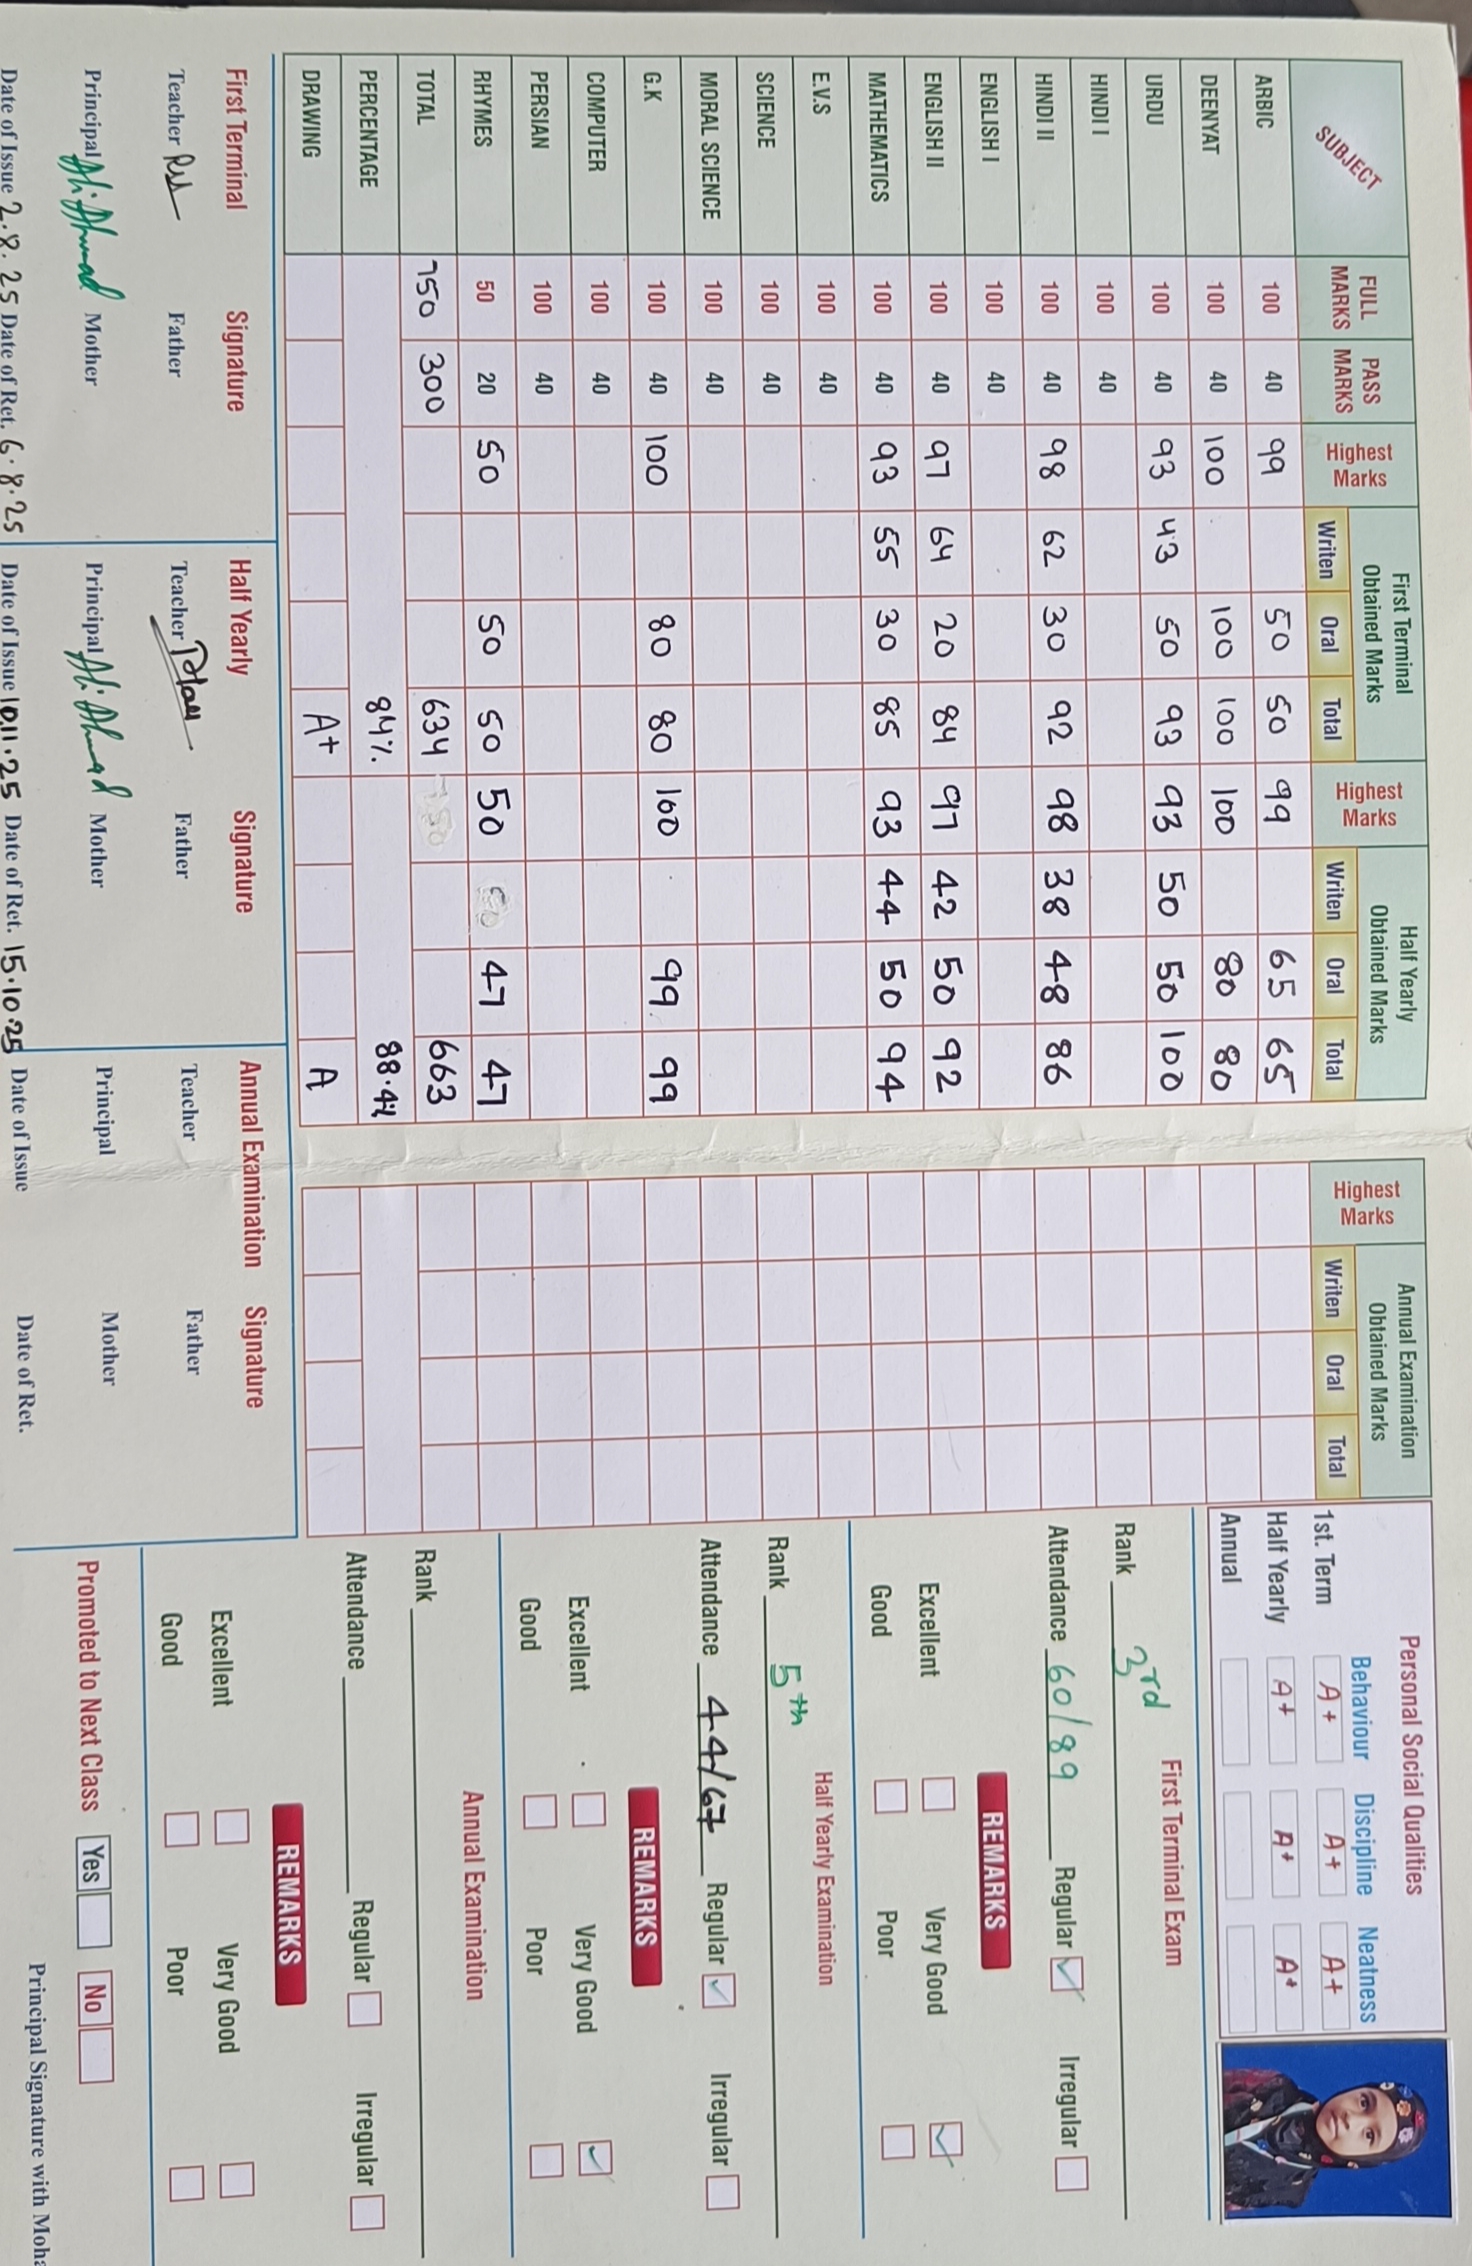 SUBJECT FULL MARKS PASS MARKS Highest Marks First Terminal Obtained Marks Half Yearly Obtained Marks
Writen Oral Total Highest Marks Writen Oral Total
ARBIC 100 40 99 50 50 99 65 65
DEENYAT 100 40 100 100 100 100 80 80
URDU 100 40 93 43 50 93 93 50 50 100
HINDI I 100 40
HINDI II 100 40 98 62 30 92 98 38 48 86
ENGLISH I 100 40
ENGLISH II 100 40 97 64 20 84 97 42 50 92
MATHEMATICS 100 40 93 55 30 85 93 44 50 94
E.V.S 100 40
SCIENCE 100 40
MORAL SCIENCE 100 40
G.K 100 40 100 80 80 100 99 99
COMPUTER 100 40
PERSIAN 100 40
RHYMES 50 20 50 50 50 50 47 47
TOTAL 750 300 634 663
PERCENTAGE 84% 88.4%
DRAWING A+ A
First Terminal Signature
Teacher Father
Principal Ali Ahmad Mother
Date of Issue 2.8.25 Date of Ret. 6.8.25
Half Yearly Signature
Teacher Father
Principal Ali Ahmad Mother
Date of Issue 10.11.25 Date of Ret. 15.10.25
Annual Examination Signature
Teacher Father
Principal Mother
Date of Issue Date of Ret.
Annual Examination Obtained Marks
Highest Marks Writen Oral Total
Personal Social Qualities
Behaviour Discipline Neatness
1st. Term A+ A+ A+
Half Yearly A+ A+ A+
Annual
First Terminal Exam
Rank 3rd
Attendance 60/89 Regular ✓ Irregular
REMARKS
Excellent Very Good ✓
Good Poor
Half Yearly Examination
Rank 5th
Attendance 44/67 Regular ✓ Irregular
REMARKS
Excellent Very Good ✓
Good Poor
Annual Examination
Rank
Attendance Regular Irregular
REMARKS
Excellent Very Good
Good Poor
Promoted to Next Class Yes No
Principal Signature with